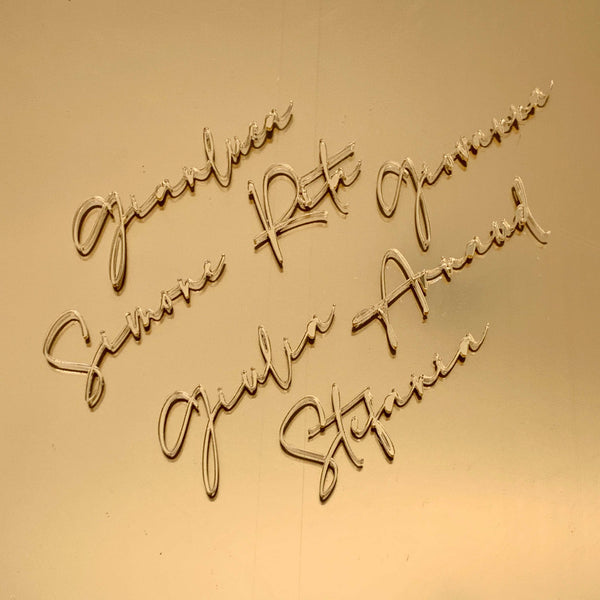 Gianluca
Rita
Giovanna
Simone
Arnaud
Giulia
Stefania